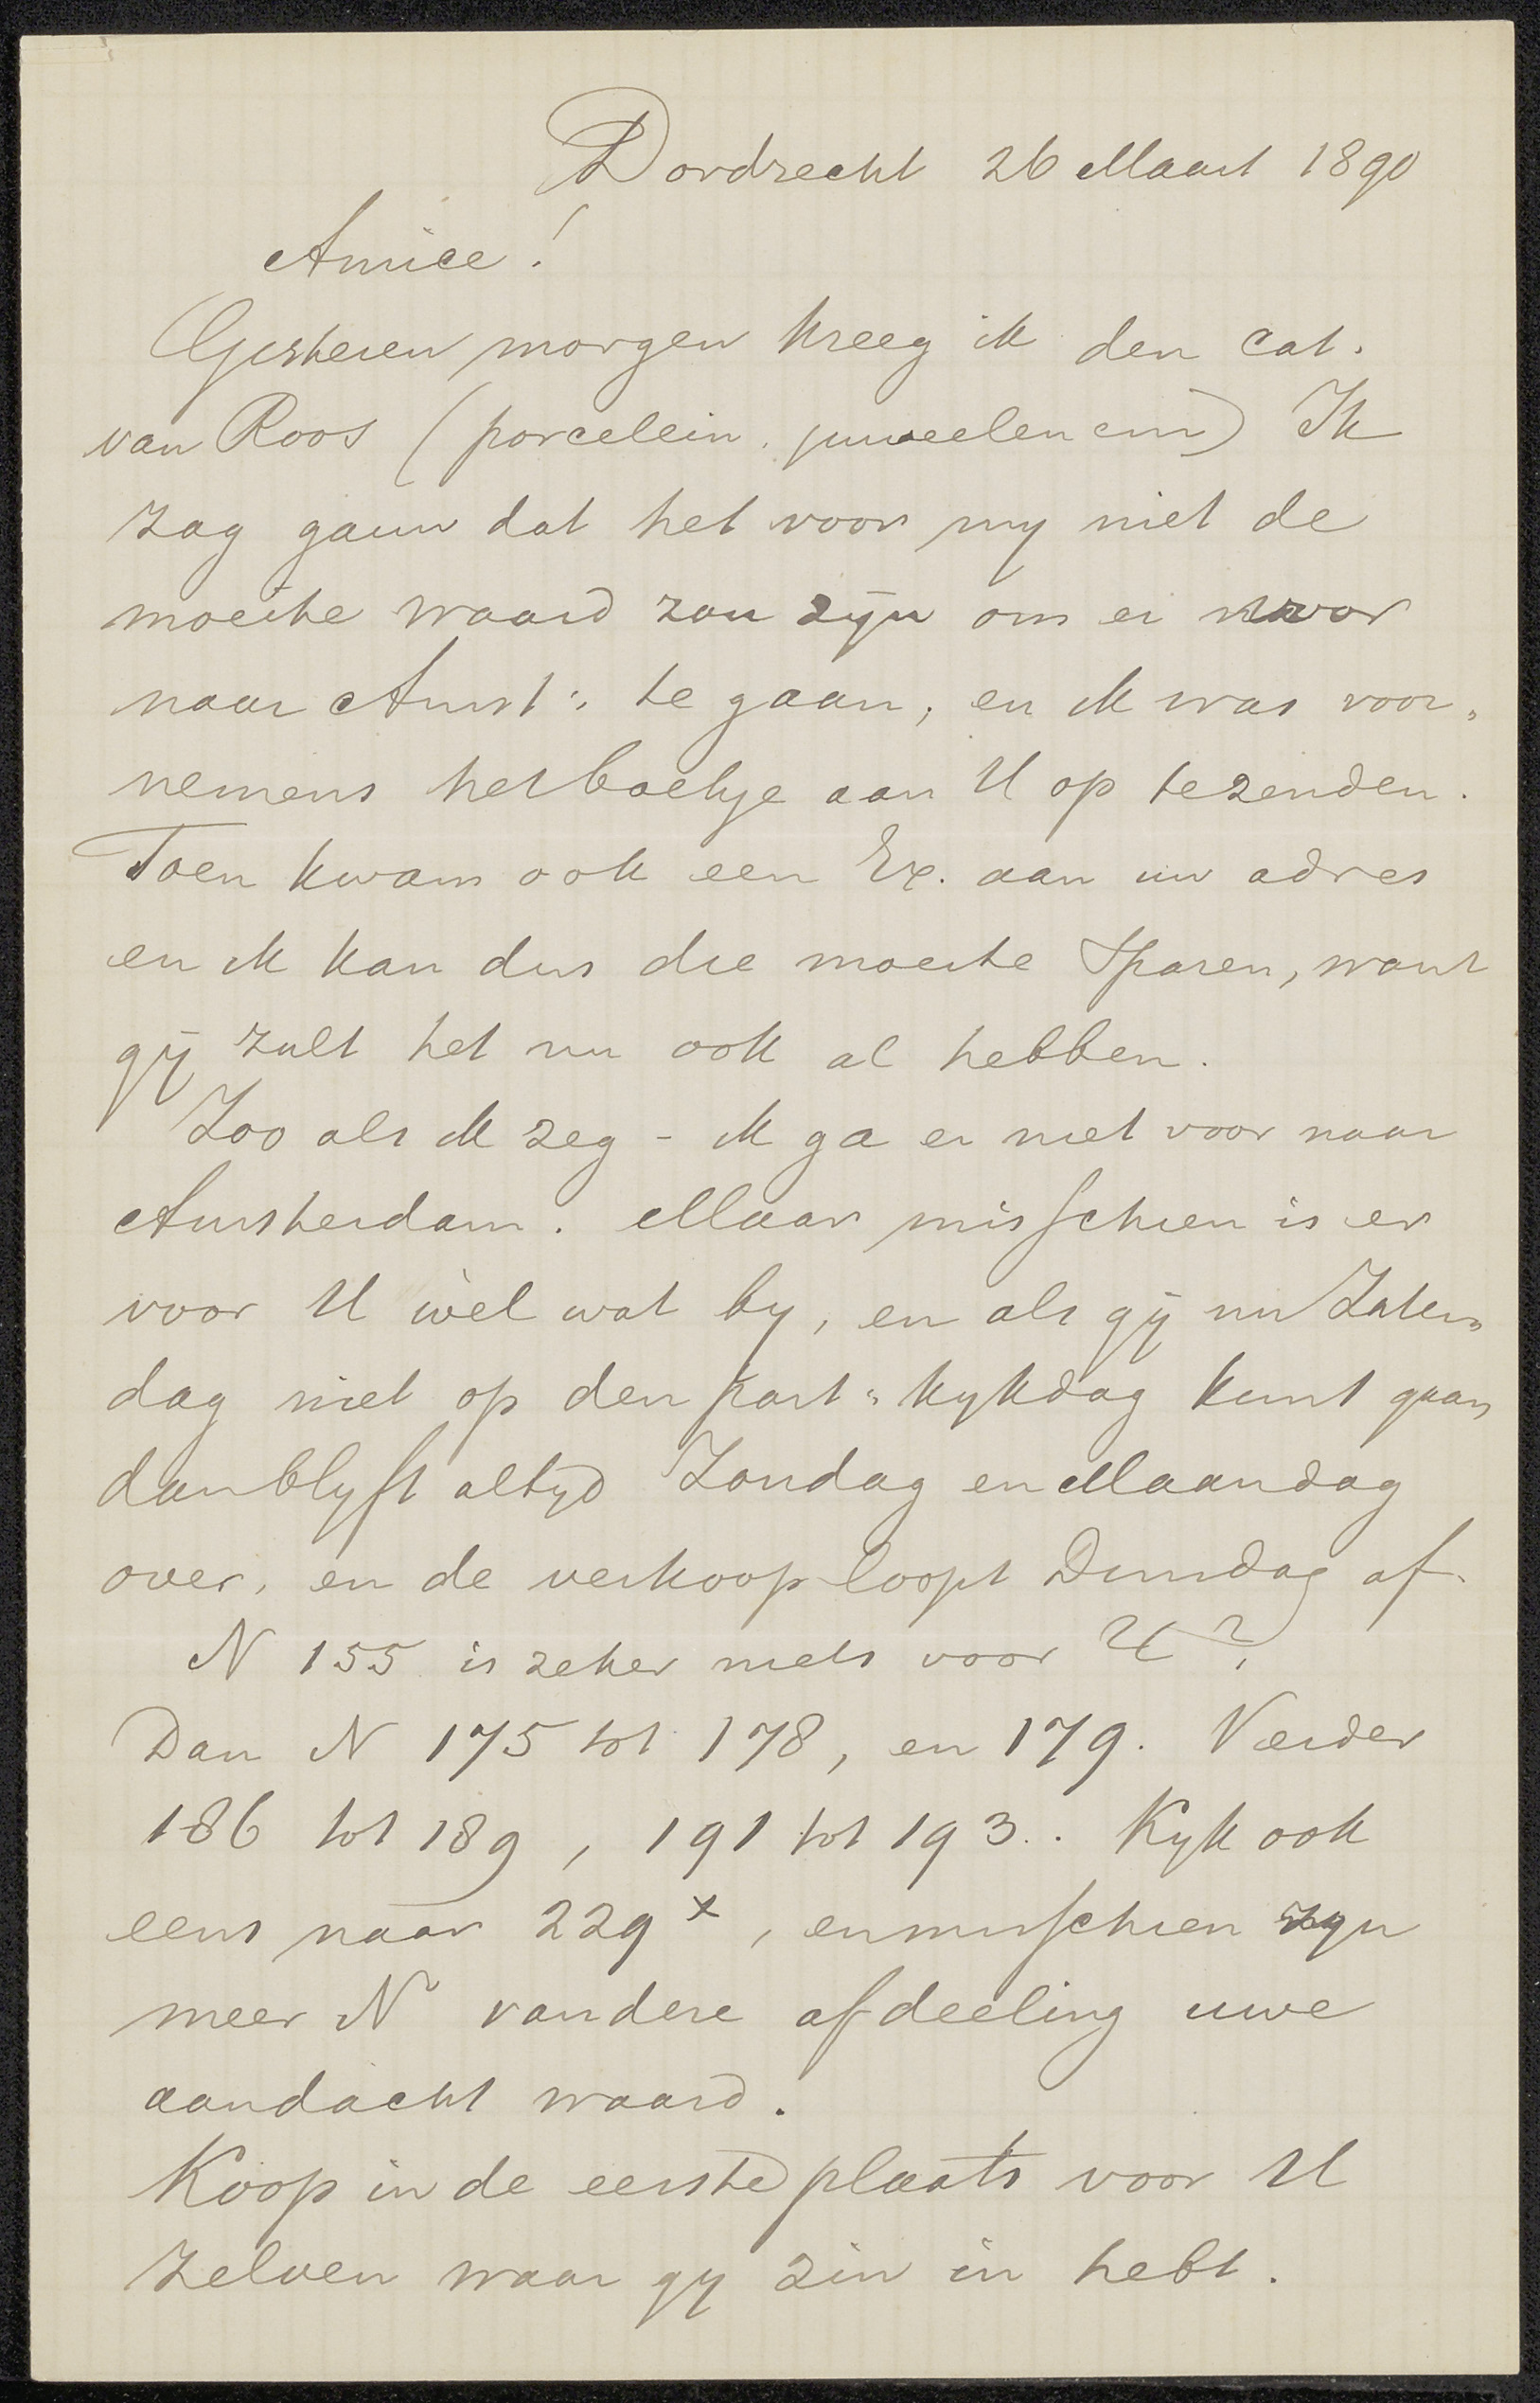 Dordrecht 26 Maart 1890
Amice!
Gisteren morgen kreeg ik den cat.
van Roos (porcelein. juweelen enz) Ik
zag gauw dat het voor my niet de
moeite waard zou zijn om er voor
naar Amst: te gaan, en ik was voor„
nemens het boekje aan U op te zenden.
Toen kwam ook een Ex. aan uw adres
en ik kan dus die moeite sparen, want
gij zult het nu ook al hebben.
Zoo als ik zeg - ik ga er niet voor naar
Amsterdam. Maar misschien is er
voor U wèl wat by, en als gij nu Zater„
dag niet op den part„ kykdag kunt gaan
dan blyft altyd Zondag en Maandag
over, en de verkoop loopt Dinsdag af.
N 155 is zeker niets voor U?
Dan N 175 tot 178, en 179. Verder
186 tot 189, 191 tot 193.. Kyk ook
eens naar 229 x, en misschien zyn
meer N van dese afdeeling uwe
aandacht waard.
Koop in de eerste plaats voor U
zelven waar gy zin in hebt.